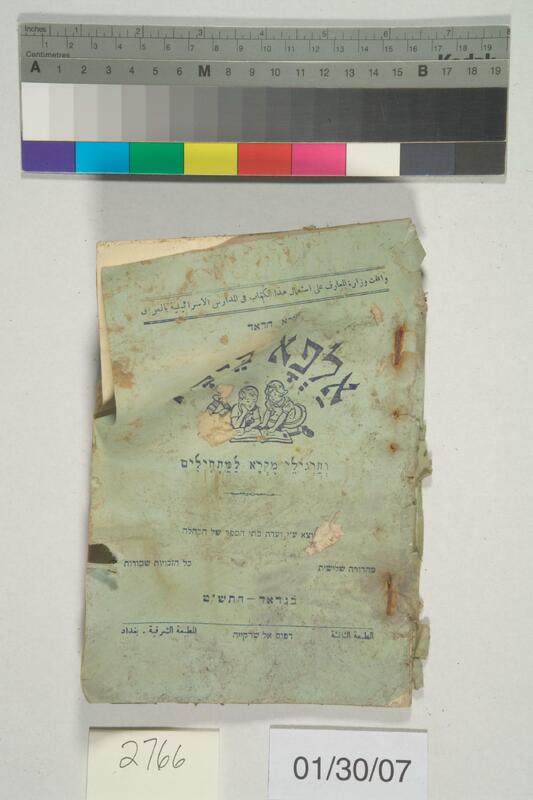 Inches 1 2 3 4 5 6 7 8
Centimetres 1 2 3 4 5 6 7 8 9 10 11 12 13 14 15 16 17 18 19
Kodak
A 1 2 3 4 5 6 M 8 9 10 11 12 13 14 15 B 17 18 19
وافقت وزارة المعارف على استعمال هذا الكتاب في المدارس الاسرائيلية بالعراف
אָלֶפָא
וְתַרְגִּילֵי מִקְרָא לַמַּתְחִילִים
יוצא ע״י ועדת בתי הספר של הקהלה
מהדורה שלישית
כל הזכויות שמורות
בגדאד — התש״ט
الطبعة الثالثة
דפוס אל שרקייה
المطبعة الشرقية . بغداد
2766
01/30/07